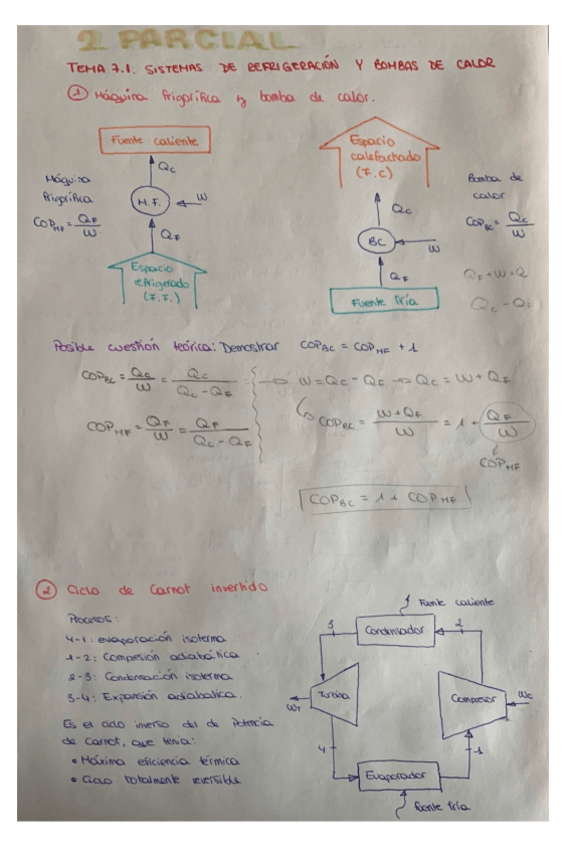 2 PARCIAL
TEMA 7.1. SISTEMAS DE REFRIGERACIÓN Y BOMBAS DE CALOR
① Máquina frigorífica y bomba de calor.
Fuente caliente
Qc
Máquina
frigorífica
M.F.
W
COP_MF = Q_F / W
Q_F
Espacio
refrigerado
(F.F.)
Espacio
calefachado
(F.C)
Qc
Bomba de
calor
COP_BC = Qc / W
BC
W
Q_F
Fuente fría
Q_F + W = Q
Qc - Q
Posible cuestión teórica: Demostrar COP_BC = COP_MF + 1
COP_BC = Qc / W = Qc / (Qc - Q_F) → W = Qc - Q_F → Qc = W + Q_F
COP_MF = Q_F / W = Q_F / (Qc - Q_F)
↳ COP_BC = (W + Q_F) / W = 1 + Q_F / W
COP_MF
COP_BC = 1 + COP_MF
② Ciclo de Carnot invertido
Procesos:
4-1: evaporación isoterma
1-2: Compesión adiabática
2-3: Condensación isoterma
3-4: Expansión adiabatica.
Es el ciclo inverso del de Potencia
de Carnot, que tenia:
• Máxima eficiencia térmica
• Ciclo totalmente reversible
Fuente caliente
3
Condensador
2
Turbina
W_T
Compresor
Wc
4
Evaporador
1
fuente fría